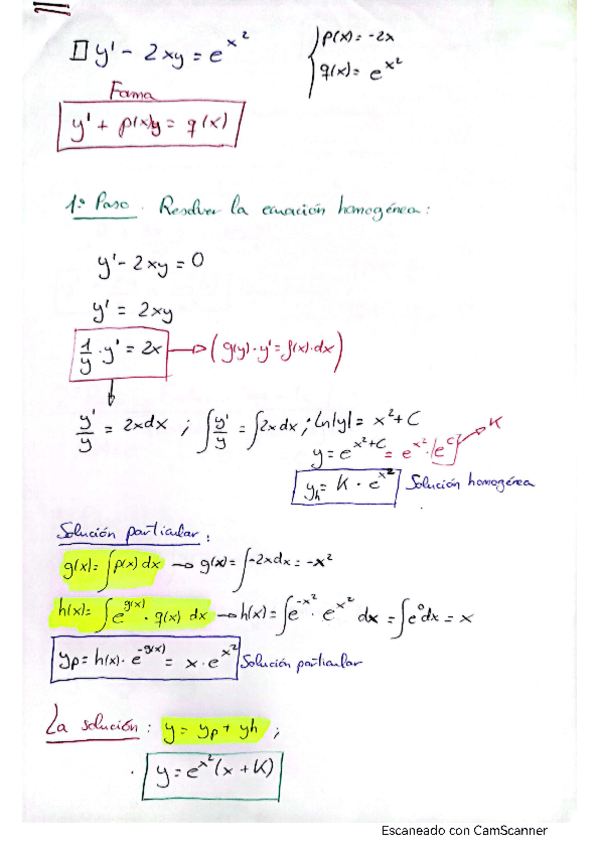 y' - 2xy = e^{x^2}
p(x) = -2x
q(x) = e^{x^2}
Foma
y' + p(x)y = q(x)
1º Paso. Resolver la ecuación homogénea:
y' - 2xy = 0
y' = 2xy
1/y · y' = 2x → (g(y)·y' = f(x)·dx)
y'/y = 2xdx ; ∫y'/y = ∫2xdx ; ln|y| = x^2 + C
y = e^{x^2+C} = e^{x^2}·e^C → K
y_h = K · e^{x^2} Solución homogénea
Solución particular:
g(x) = ∫p(x) dx → g(x) = ∫-2xdx = -x^2
h(x) = ∫e^{g(x)} · q(x) dx → h(x) = ∫e^{-x^2} · e^{x^2} dx = ∫e^0 dx = x
yp = h(x) · e^{-g(x)} = x · e^{x^2} Solución particular
La solución: y = yp + yh ;
y = e^{x^2}(x + K)
Escaneado con CamScanner